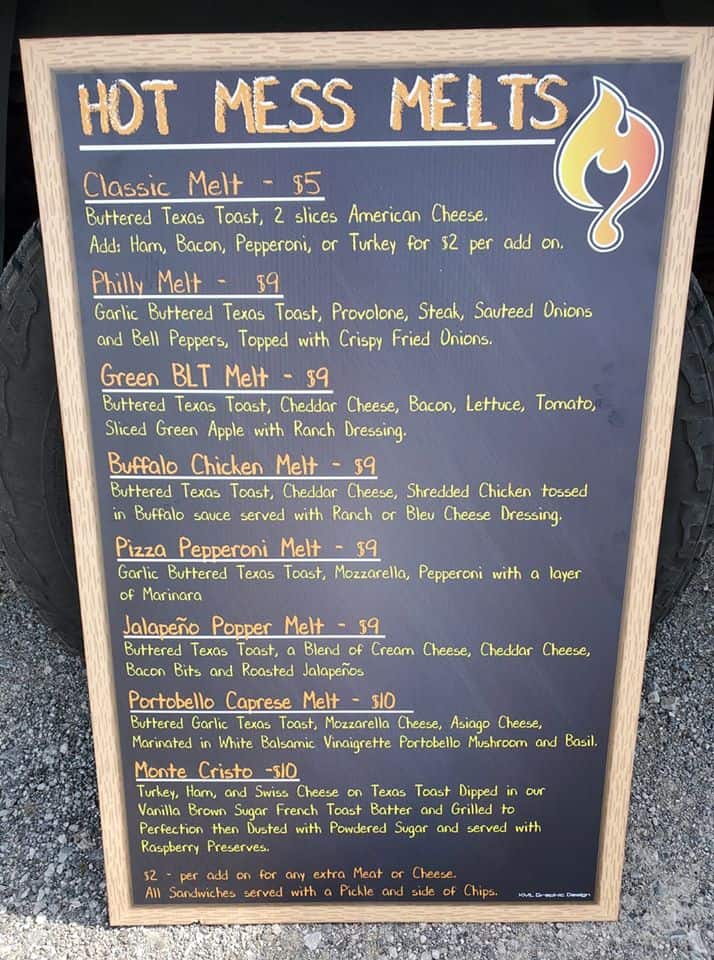 HOT MESS MELTS
Classic Melt - $5
Buttered Texas Toast, 2 slices American Cheese.
Add: Ham, Bacon, Pepperoni, or Turkey for $2 per add on.
Philly Melt - $9
Garlic Buttered Texas Toast, Provolone, Steak, Sauteed Onions
and Bell Peppers, Topped with Crispy Fried Onions.
Green BLT Melt - $9
Buttered Texas Toast, Cheddar Cheese, Bacon, Lettuce, Tomato,
Sliced Green Apple with Ranch Dressing.
Buffalo Chicken Melt - $9
Buttered Texas Toast, Cheddar Cheese, Shredded Chicken tossed
in Buffalo sauce served with Ranch or Bleu Cheese Dressing.
Pizza Pepperoni Melt - $9
Garlic Buttered Texas Toast, Mozzarella, Pepperoni with a layer
of Marinara
Jalapeño Popper Melt - $9
Buttered Texas Toast, a Blend of Cream Cheese, Cheddar Cheese,
Bacon Bits and Roasted Jalapeños
Portobello Caprese Melt - $10
Buttered Garlic Texas Toast, Mozzarella Cheese, Asiago Cheese,
Marinated in White Balsamic Vinaigrette Portobello Mushroom and Basil.
Monte Cristo -$10
Turkey, Ham, and Swiss Cheese on Texas Toast Dipped in our
Vanilla Brown Sugar French Toast Batter and Grilled to
Perfection then Dusted with Powdered Sugar and served with
Raspberry Preserves.
$2 - per add on for any extra Meat or Cheese.
All Sandwiches served with a Pickle and side of Chips.
KML Graphic Design